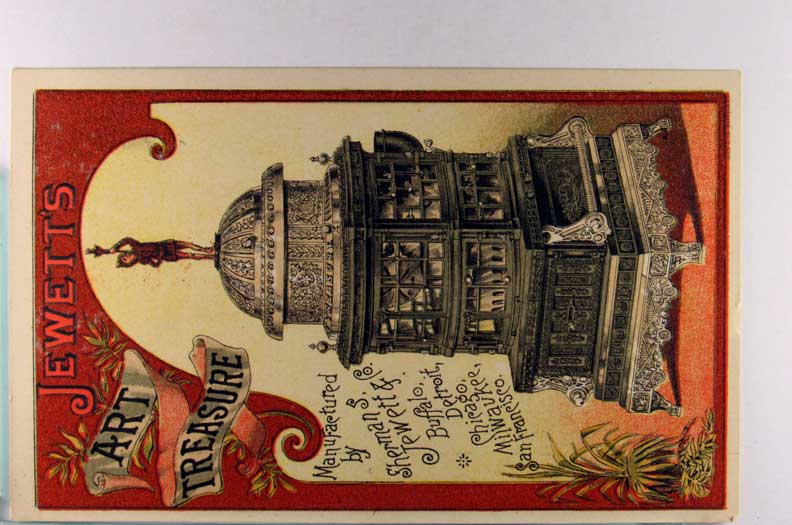 JEWETT'S
ART
TREASURE
Manufactured
by
Sherman S.
Jewett & Co.
Buffalo,
Detroit,
Chicago,
Milwaukee,
San Francisco.